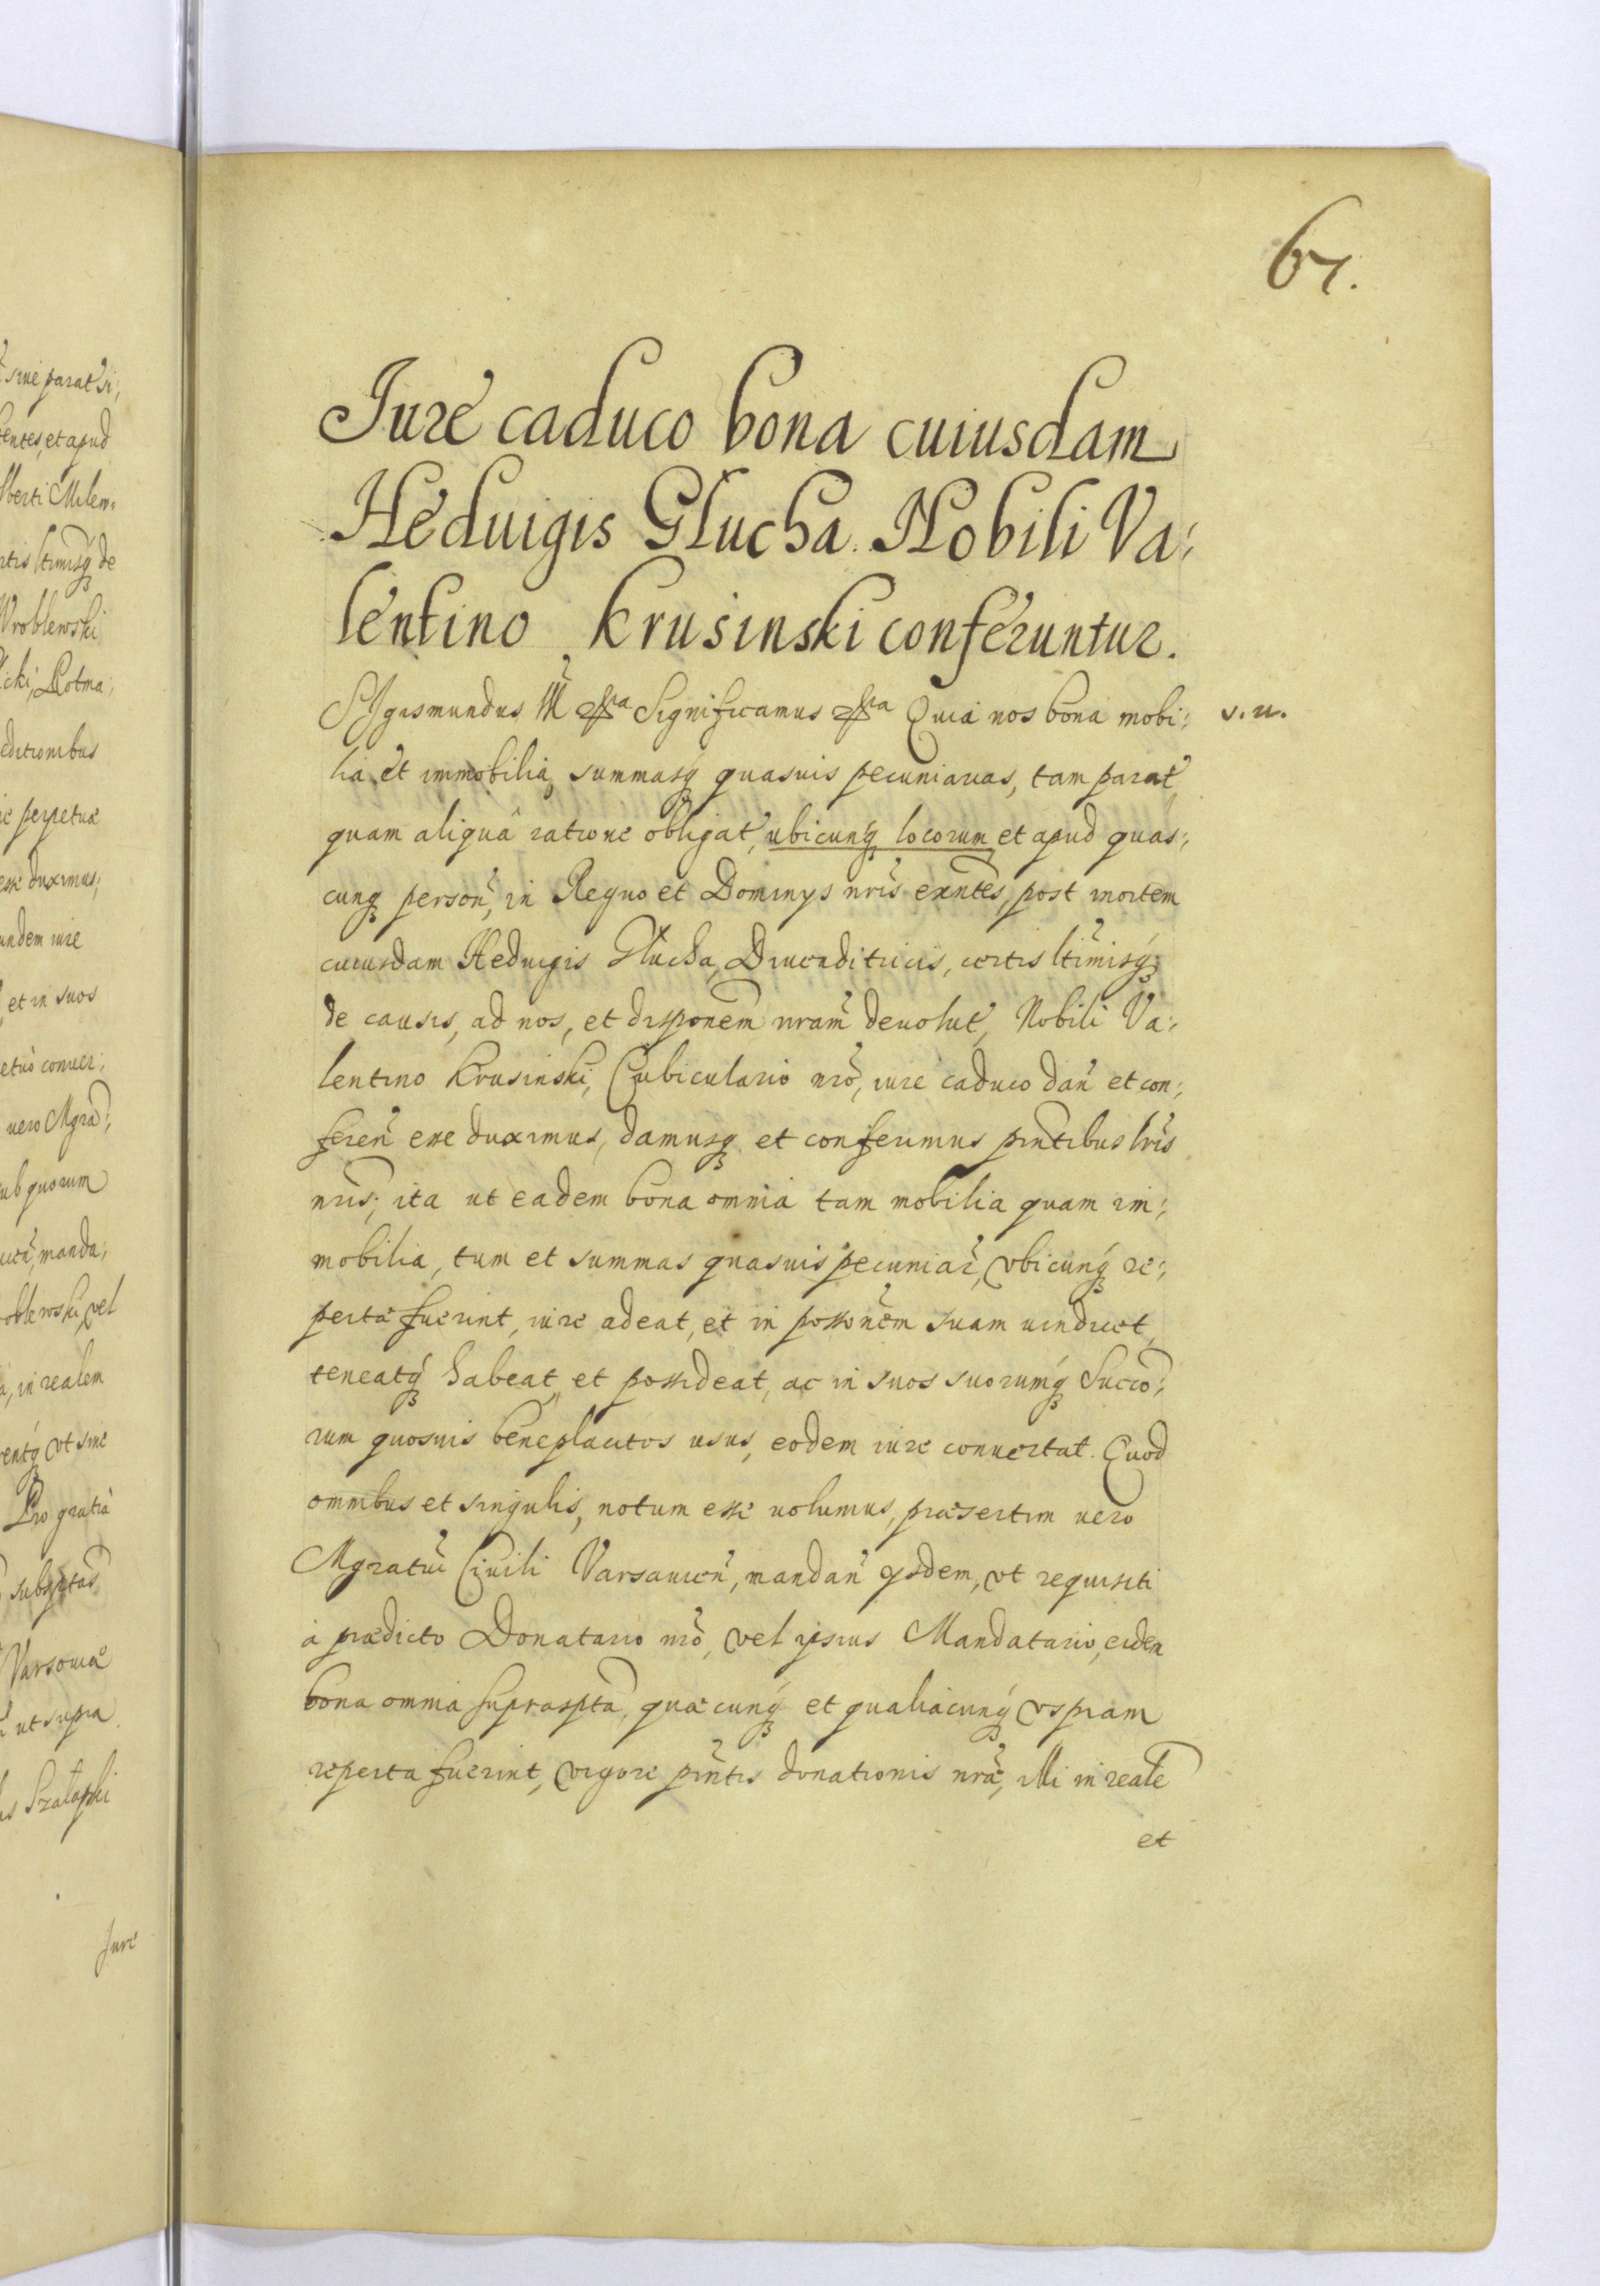 67.
Jure caduco bona cuiusdam
Heduigis Głucha Nobili Va:
lentino Krusinski conferuntur.
Sygismundus III etca Significamus etca Quia nos bona mobi: s. n.
lia et immobilia, summasq quasuis pecuniarias, tam parat
quam aliquâ ratione obligat, ubicunq locorum et apud quas:
cunq person, in Regno et Dominys nris exntes, post mortem
cuiusdam Heduigis Głucha, Diuenditricis, certis ltimisq
de causis, ad nos, et disponem nram deuolut, Nobili Va:
lentino Krusinski, Cubiculario nro, iure caduco dan et con:
feren esse duximus, damusq et conferimus pntibus lris
nris; ita ut eadem bona omnia tam mobilia quam im:
mobilia, tum et summas quasuis pecuniar, vbicunq re:
perta fuerint, iure adeat, et in possonem suam uindicet,
teneatq habeat, et possideat, ac in suos suorumq Succo:
rum quosuis beneplacitos usus, eodem iure conuertat. Quod
omnibus et singulis, notum esse uolumus, præsertim uero
Mgratui Ciuili Varsauien, mandan ysdem, vt requisiti
à prædicto Donatario nro, vel ipsius Mandatario, eidem
bona omnia suprasptа, quæcunq et qualiacunq vspiam
reperta fuerint, vigore pntis donationis nræ, illi in reale
et
sine parat si;
entes, et apud
berti Milew:
rtis ltimisq de
Wroblewski
cki, Rotma;
editionibus
perpetuæ
esse duximus;
undem iure
et in suos
etuò conuer;
uero Mgrã;
sub quorum
manda;
oblewski, vel
in realem
entq vt sine
Pro gratia
subptas
Varsouiæ
ut supra
Jure